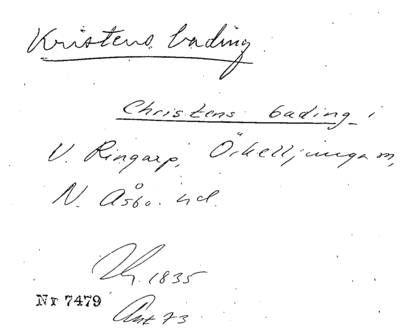 Kristens bading
Christens bading i
V. Ringarp, Örkelljunga sn,
N. Åsbo hd.
1835
Nr 7479
Ant 73